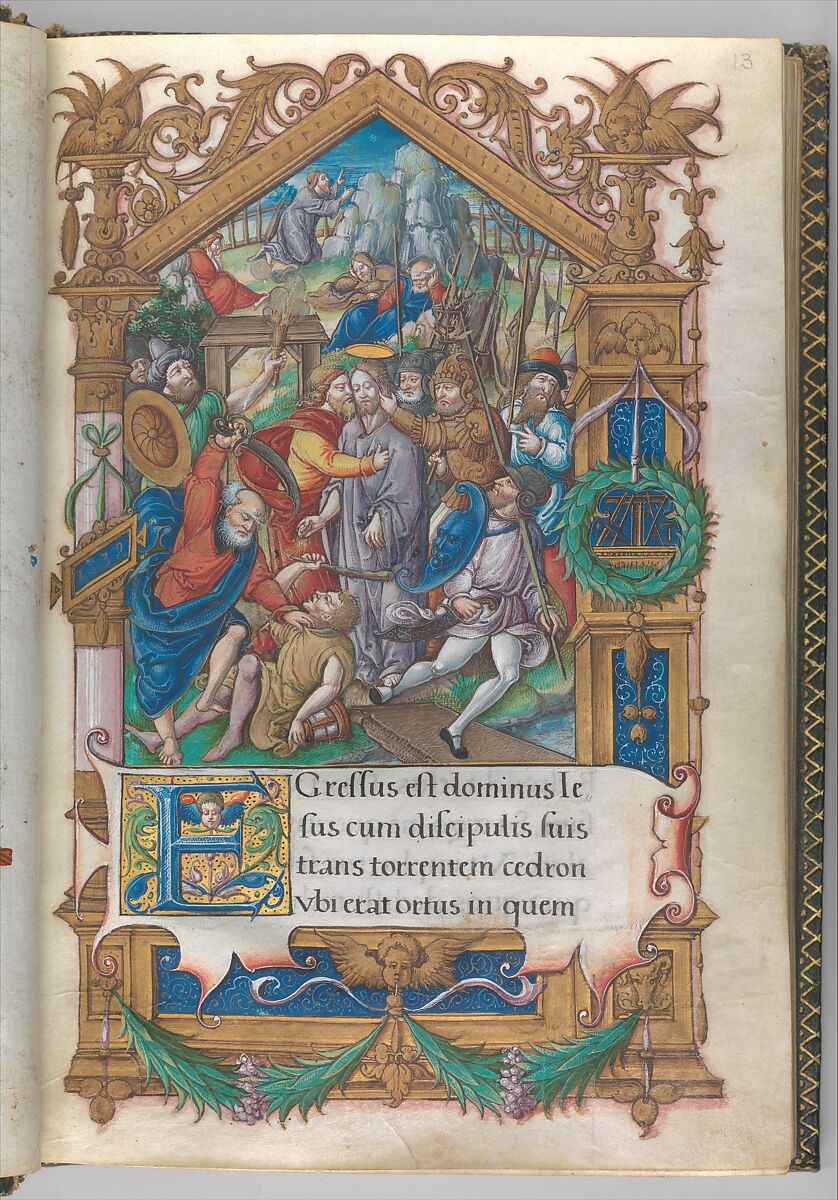 13
1539
EGreſſus eſt dominus Ie,,
ſus cum diſcipulis ſuis
trans torrentem cedron
vbi erat ortus in quem